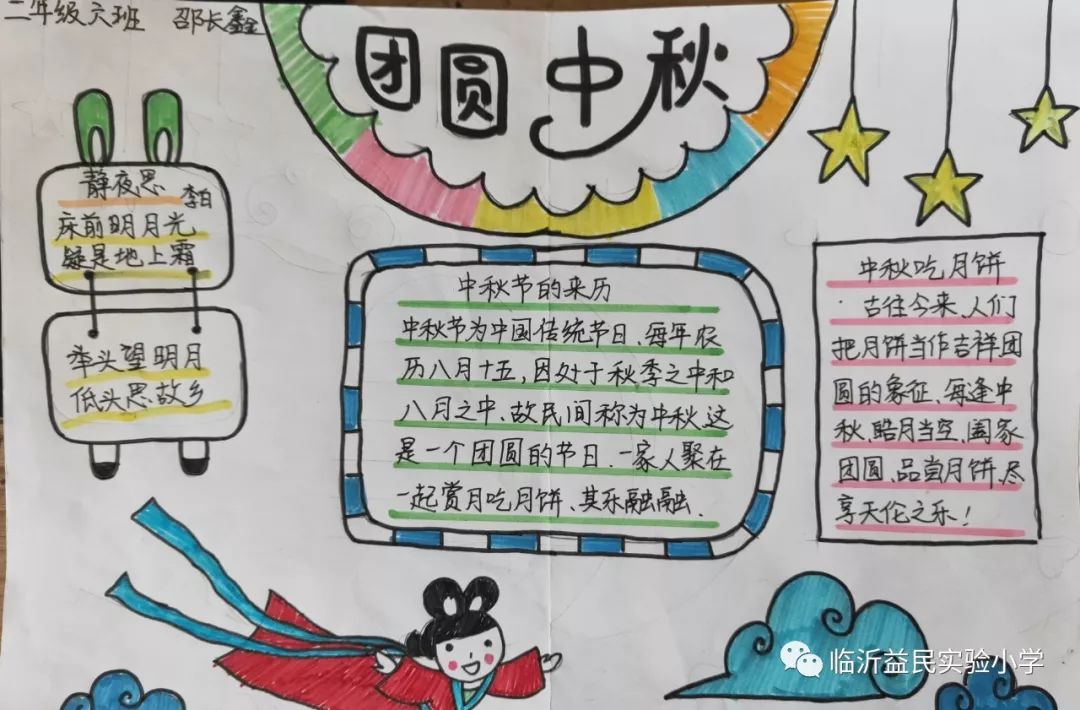 二年级六班 邵长鑫
团圆中秋
静夜思
李白
床前明月光
疑是地上霜
举头望明月
低头思故乡
中秋节的来历
中秋节为中国传统节日、每年农
历八月十五,因处于秋季之中和
八月之中、故民间称为中秋、这
是一个团圆的节日.一家人聚在
一起赏月吃月饼、其乐融融.
中秋吃月饼
古往今来、人们
把月饼当作吉祥团
圆的象征、每逢中
秋、皓月当空、阖家
团圆、品尝月饼、尽
享天伦之乐!
临沂益民实验小学